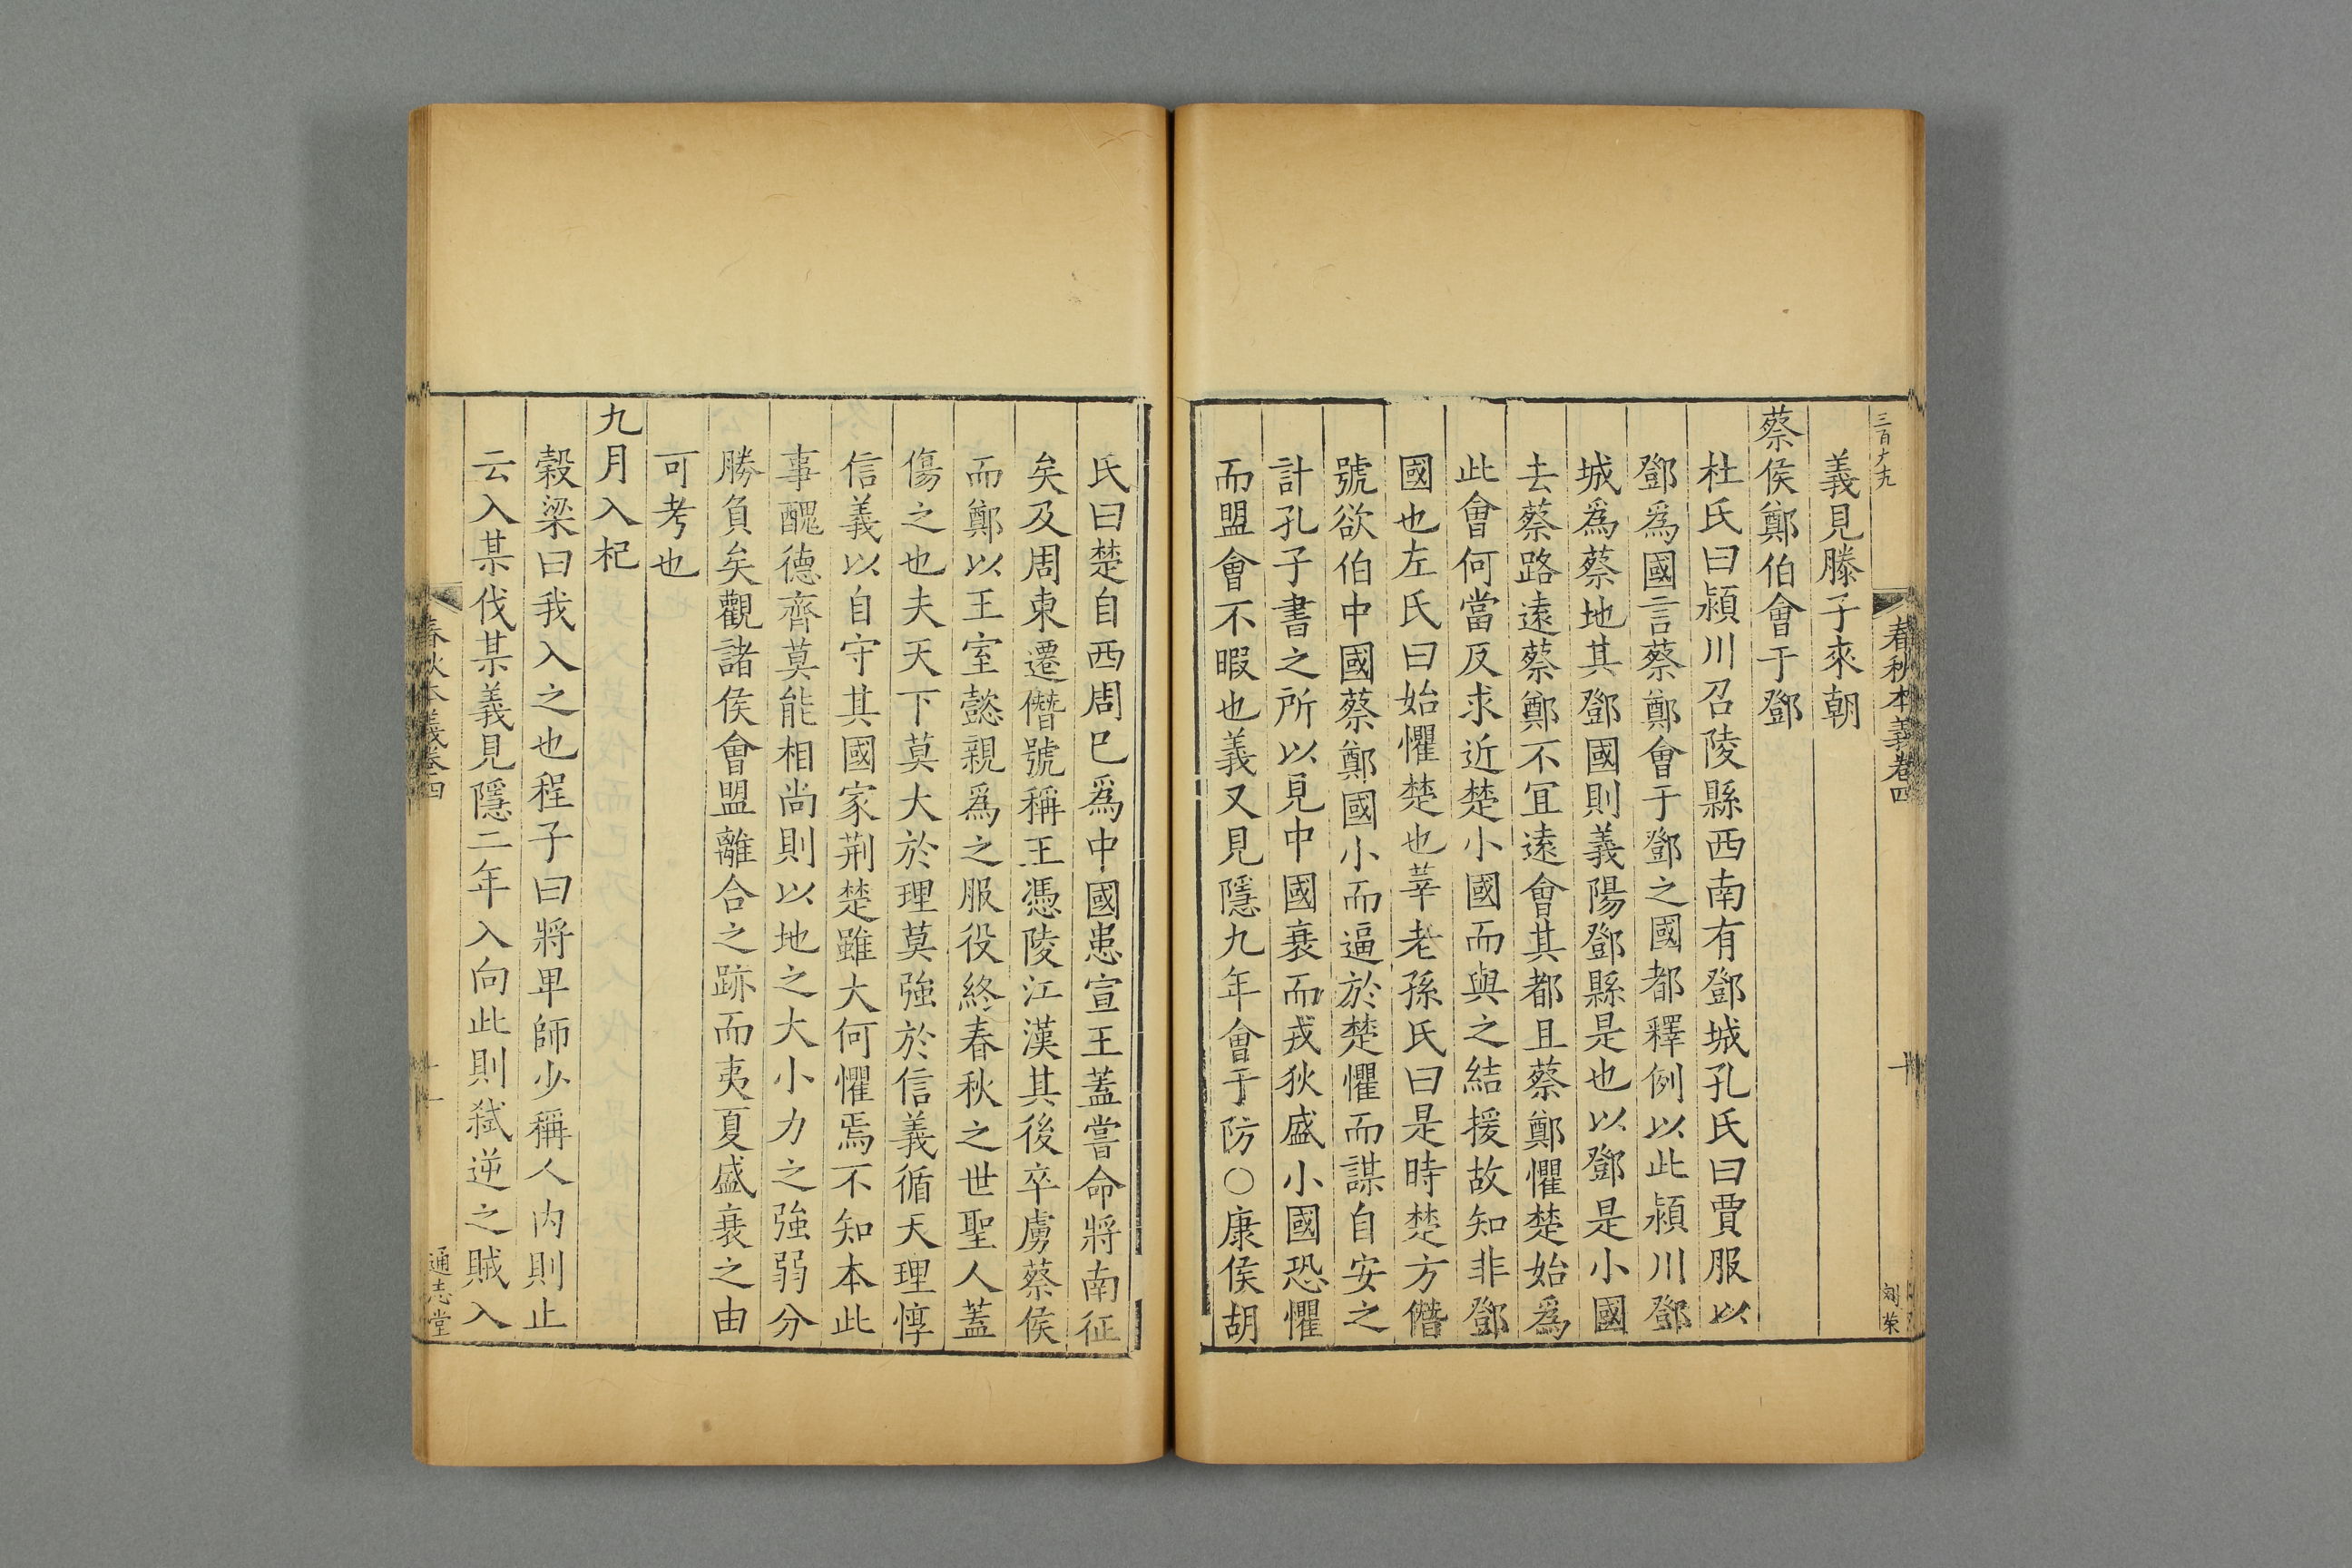 春秋本義卷四
十
義見滕子來朝
蔡侯鄭伯會于鄧
杜氏曰潁川召陵縣西南有鄧城孔氏曰賈服以
鄧爲國言蔡鄭會于鄧之國都釋例以此潁川鄧
城爲蔡地其鄧國則義陽鄧縣是也以鄧是小國
去蔡路遠蔡鄭不宜遠會其都且蔡鄭懼楚始爲
此會何當反求近楚小國而與之結援故知非鄧
國也左氏曰始懼楚也莘老孫氏曰是時楚方僭
號欲伯中國蔡鄭國小而逼於楚懼而謀自安之
計孔子書之所以見中國衰而戎狄盛小國恐懼
而盟會不暇也義又見隱九年會于防○康侯胡
氏曰楚自西周已爲中國患宣王蓋嘗命將南征
矣及周東遷僭號稱王憑陵江漢其後卒虜蔡侯
而鄭以王室懿親爲之服役終春秋之世聖人蓋
傷之也夫天下莫大於理莫強於信義循天理惇
信義以自守其國家荆楚雖大何懼焉不知本此
事醜德齊莫能相尚則以地之大小力之強弱分
勝負矣觀諸侯會盟離合之跡而夷夏盛衰之由
可考也
九月入杞
榖梁曰我入之也程子曰將卑師少稱人内則止
云入某伐某義見隱二年入向此則弑逆之賊入
春秋本義卷四
通志堂